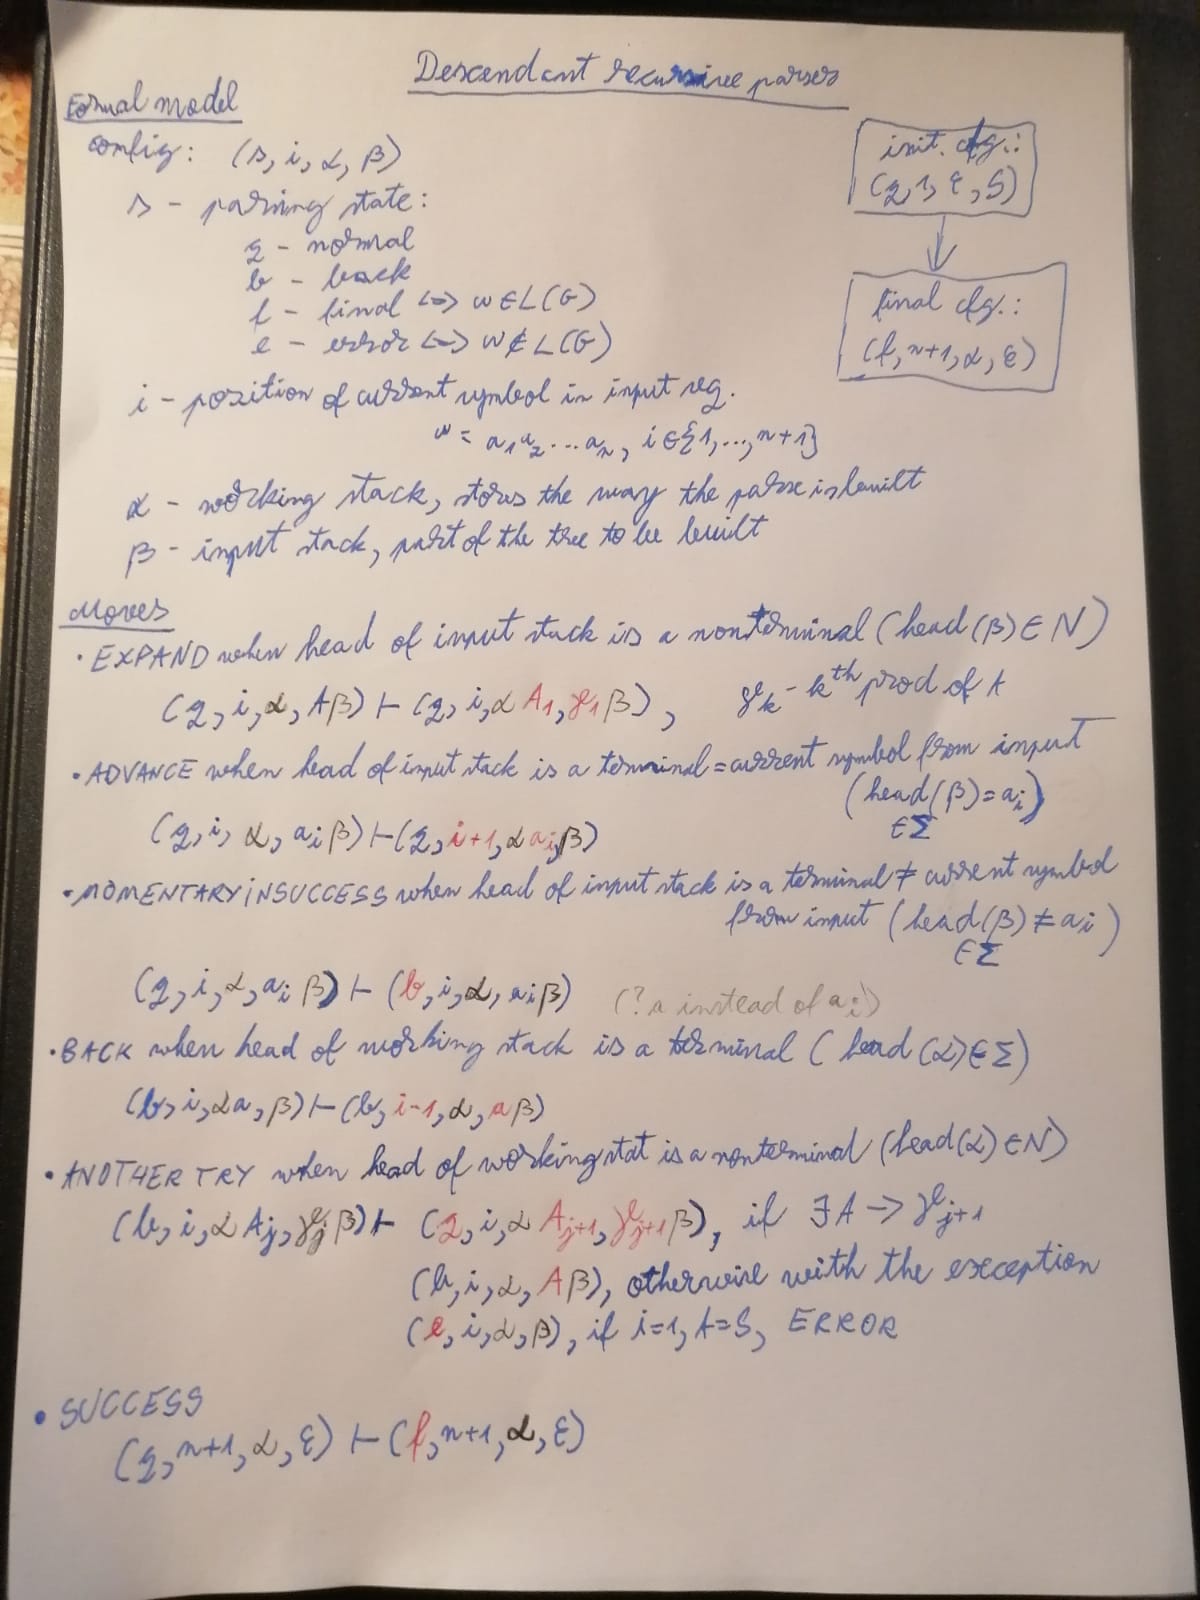 Descendant recursive parsers
Formal model
config: (s, i, α, β)
s - parsing state:
q - normal
b - back
f - final <=> w∈L(G)
e - error <=> w∉L(G)
init. cfg.:
(q, 1, ε, S)
final cfg.:
(f, n+1, α, ε)
i - position of current symbol in input seq.
w = a₁a₂...aₙ, i∈{1,...,n+1}
α - working stack, stores the way the parse is built
β - input stack, part of the tree to be built
Moves
• EXPAND when head of input stack is a nonterminal (head(β)∈N)
(q, i, α, Aβ) ⊢ (q, i, αA₁, γ₁β), γₖ - kᵗʰ prod of A
• ADVANCE when head of input stack is a terminal = current symbol from input
(head(β)=aᵢ)
∈Σ
(q, i, α, aᵢβ) ⊢ (q, i+1, αaᵢ, β)
• MOMENTARY INSUCCESS when head of input stack is a terminal ≠ current symbol
from input (head(β)≠aᵢ)
∈Σ
(q, i, α, aᵢβ) ⊢ (b, i, α, aᵢβ) (? a instead of aᵢ)
• BACK when head of working stack is a terminal (head(α)∈Σ)
(b, i, αa, β) ⊢ (b, i-1, α, aβ)
• ANOTHER TRY when head of working stat is a nonterminal (head(α)∈N)
(b, i, αAⱼ, γⱼβ) ⊢ (q, i, αAⱼ₊₁, γⱼ₊₁β), if ∃A -> γⱼ₊₁
(b, i, α, Aβ), otherwise with the exception
(e, i, α, β), if i=1, A=S, ERROR
• SUCCESS
(q, n+1, α, ε) ⊢ (f, n+1, α, ε)